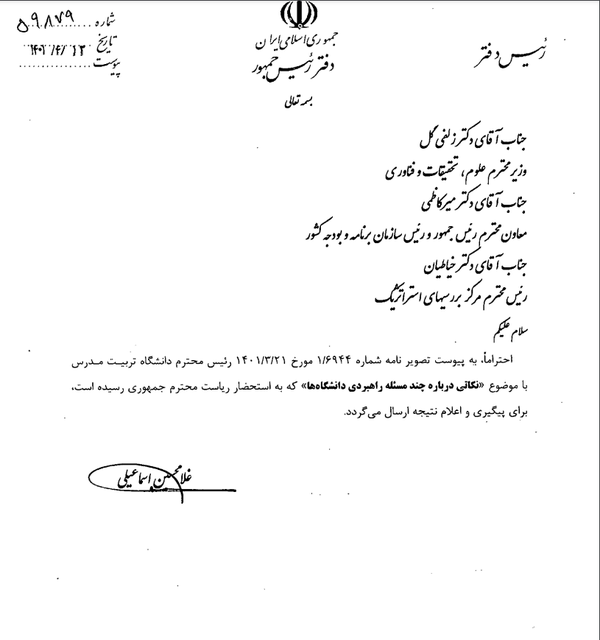 شماره ۵۹۸۷۹
تاریخ ۱۴۰۱/۴/۱۳
پیوست
جمهوری اسلامی ایران
دفتر رئیس جمهور
رئیس دفتر
بسمه تعالی
جناب آقای دکتر زلفی گل
وزیر محترم علوم، تحقیقات و فناوری
جناب آقای دکتر میرکاظمی
معاون محترم رئیس جمهور و رئیس سازمان برنامه و بودجه کشور
جناب آقای دکتر خیاطیان
رئیس محترم مرکز بررسیهای استراتژیک
سلام علیکم
احتراماً، به پیوست تصویر نامه شماره ۱/۶۹۴۴ مورخ ۱۴۰۱/۳/۲۱ رئیس محترم دانشگاه تربیت مدرس
با موضوع «نکاتی درباره چند مسئله راهبردی دانشگاه‌ها» که به استحضار ریاست محترم جمهوری رسیده است،
برای پیگیری و اعلام نتیجه ارسال می‌گردد.
غلامحسین اسماعیلی